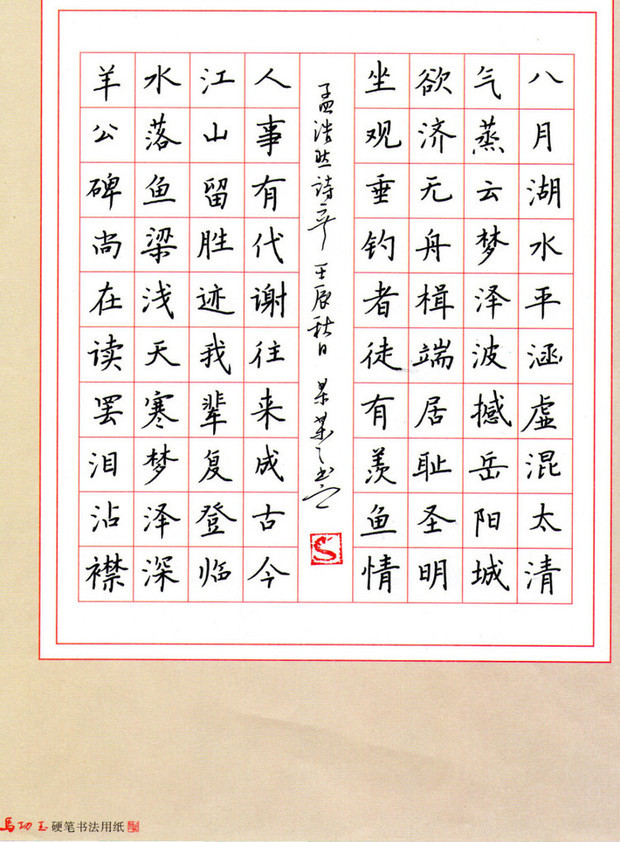 八月湖水平涵虚混太清
气蒸云梦泽波撼岳阳城
欲济无舟楫端居耻圣明
坐观垂钓者徒有羡鱼情
孟浩然詩二章 壬辰秋日
人事有代谢往来成古今
江山留胜迹我辈复登临
水落鱼梁浅天寒梦泽深
羊公碑尚在读罢泪沾襟
馬功玉硬笔书法用纸